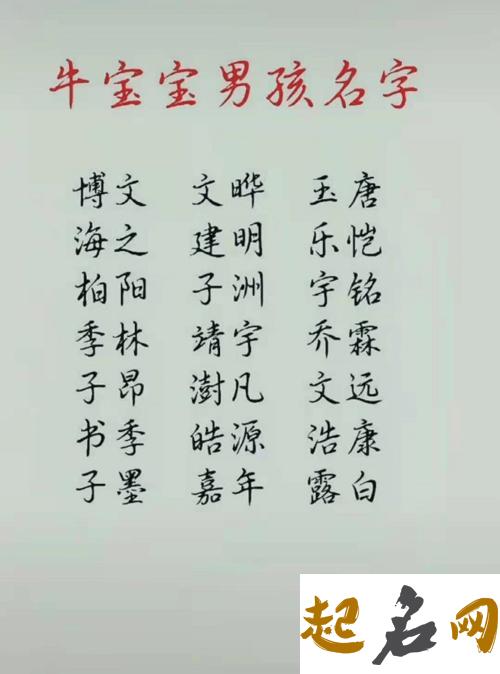 牛宝宝男孩名字
博文 文晔 玉唐
海之 建明 乐恺
柏阳 子洲 宇铭
季林 靖宇 乔霖
子昂 澍凡 文远
书季 皓源 浩康
子墨 嘉年 露白
起名网